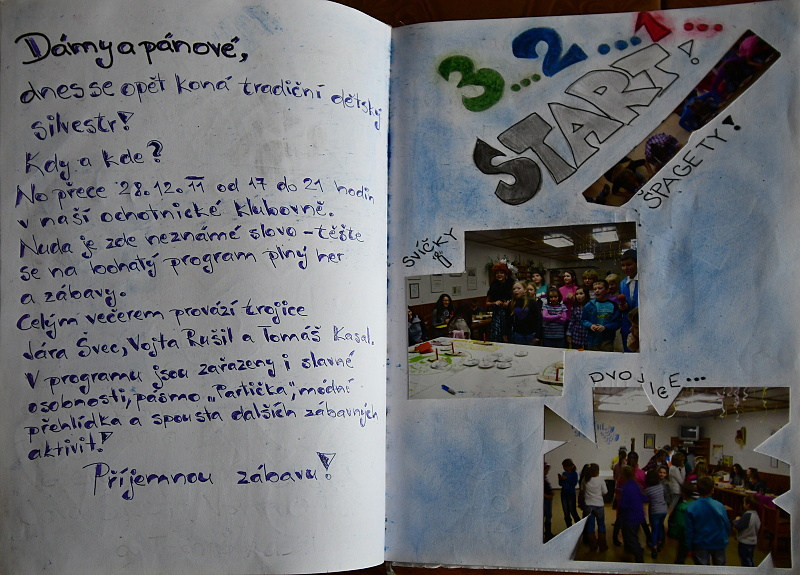 Dámy a pánové,
dnes se opět koná tradiční dětský
silvestr!
Kdy a kde?
No přece 28.12.11 od 17 do 21 hodin
v naší ochotnické klubovně.
Nuda je zde neznámé slovo - těšte
se na bohatý program plný her
a zábavy.
Celým večerem provází trojice
Jára Švec, Vojta Rušil a Tomáš Kasal.
V programu jsou zařazeny i slavné
osobnosti, pásmo „Partička", módní
přehlídka a spousta dalších zábavných
aktivit!
Příjemnou zábavu!
3...2...1...
START!
ŠPAGETY!
SVÍČKY
DVOJICE...